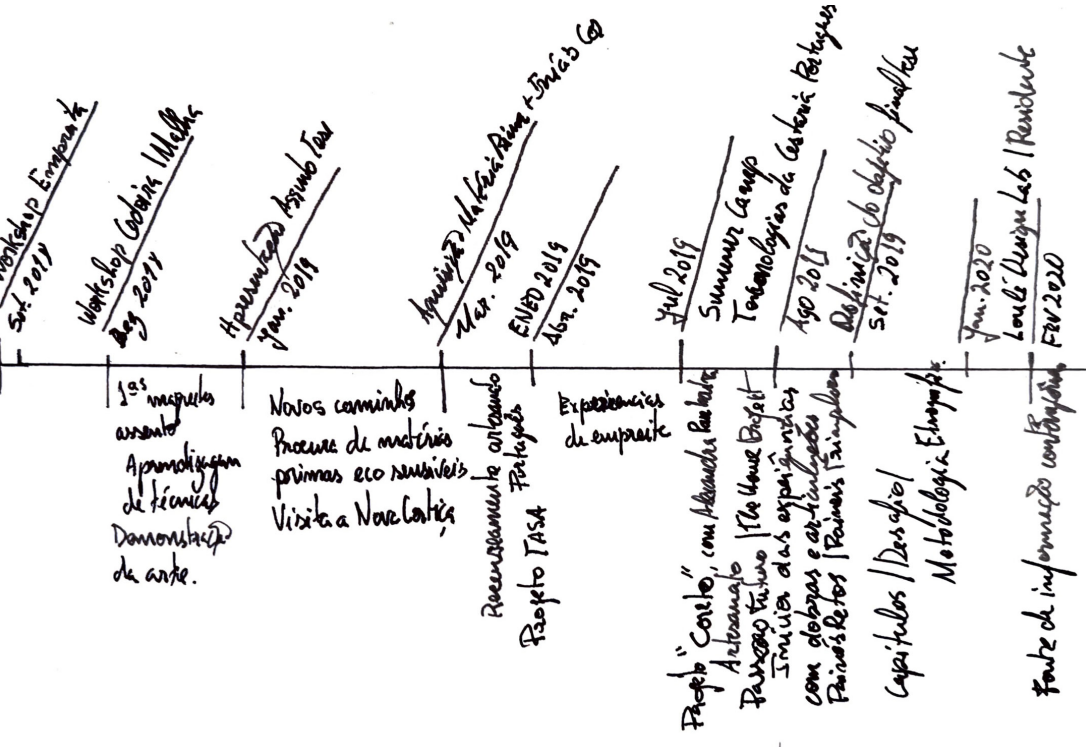 Workshop Empreita
Set. 2018
Workshop Cadeira | Malha
Dez 2018
Apresentação Assunto Tese
Jan. 2019
Aquisição Matéria Prima +
Mar. 2019
ENED 2019
Abr. 2019
Jul 2019
Summer Camp
Tecnologias da Cestaria Portuguesa
Ago 2019
Definição do desafio final tese
Set. 2019
Jan. 2020
Loulé Design Lab | Residente
FEV 2020
1ªs maquetes
assento
Aprendizagem
de técnicas
Demonstração
da arte.
Novos caminhos
Procura de matérias
primas eco sensíveis
Visita a Nova Cortiça
Recenseamento artesanato
Português
Projeto TASA
Experiencias
de empreita
Projeto "Coreto", com Alexandra
Artesanato
Passado Futuro | The Home Project
Início das experiências
com dobras e articulações
Painéis Retos | Painéis Triangulares
Capítulos | Desafio |
Metodologia Etnográfica.
Fonte de informação contínua